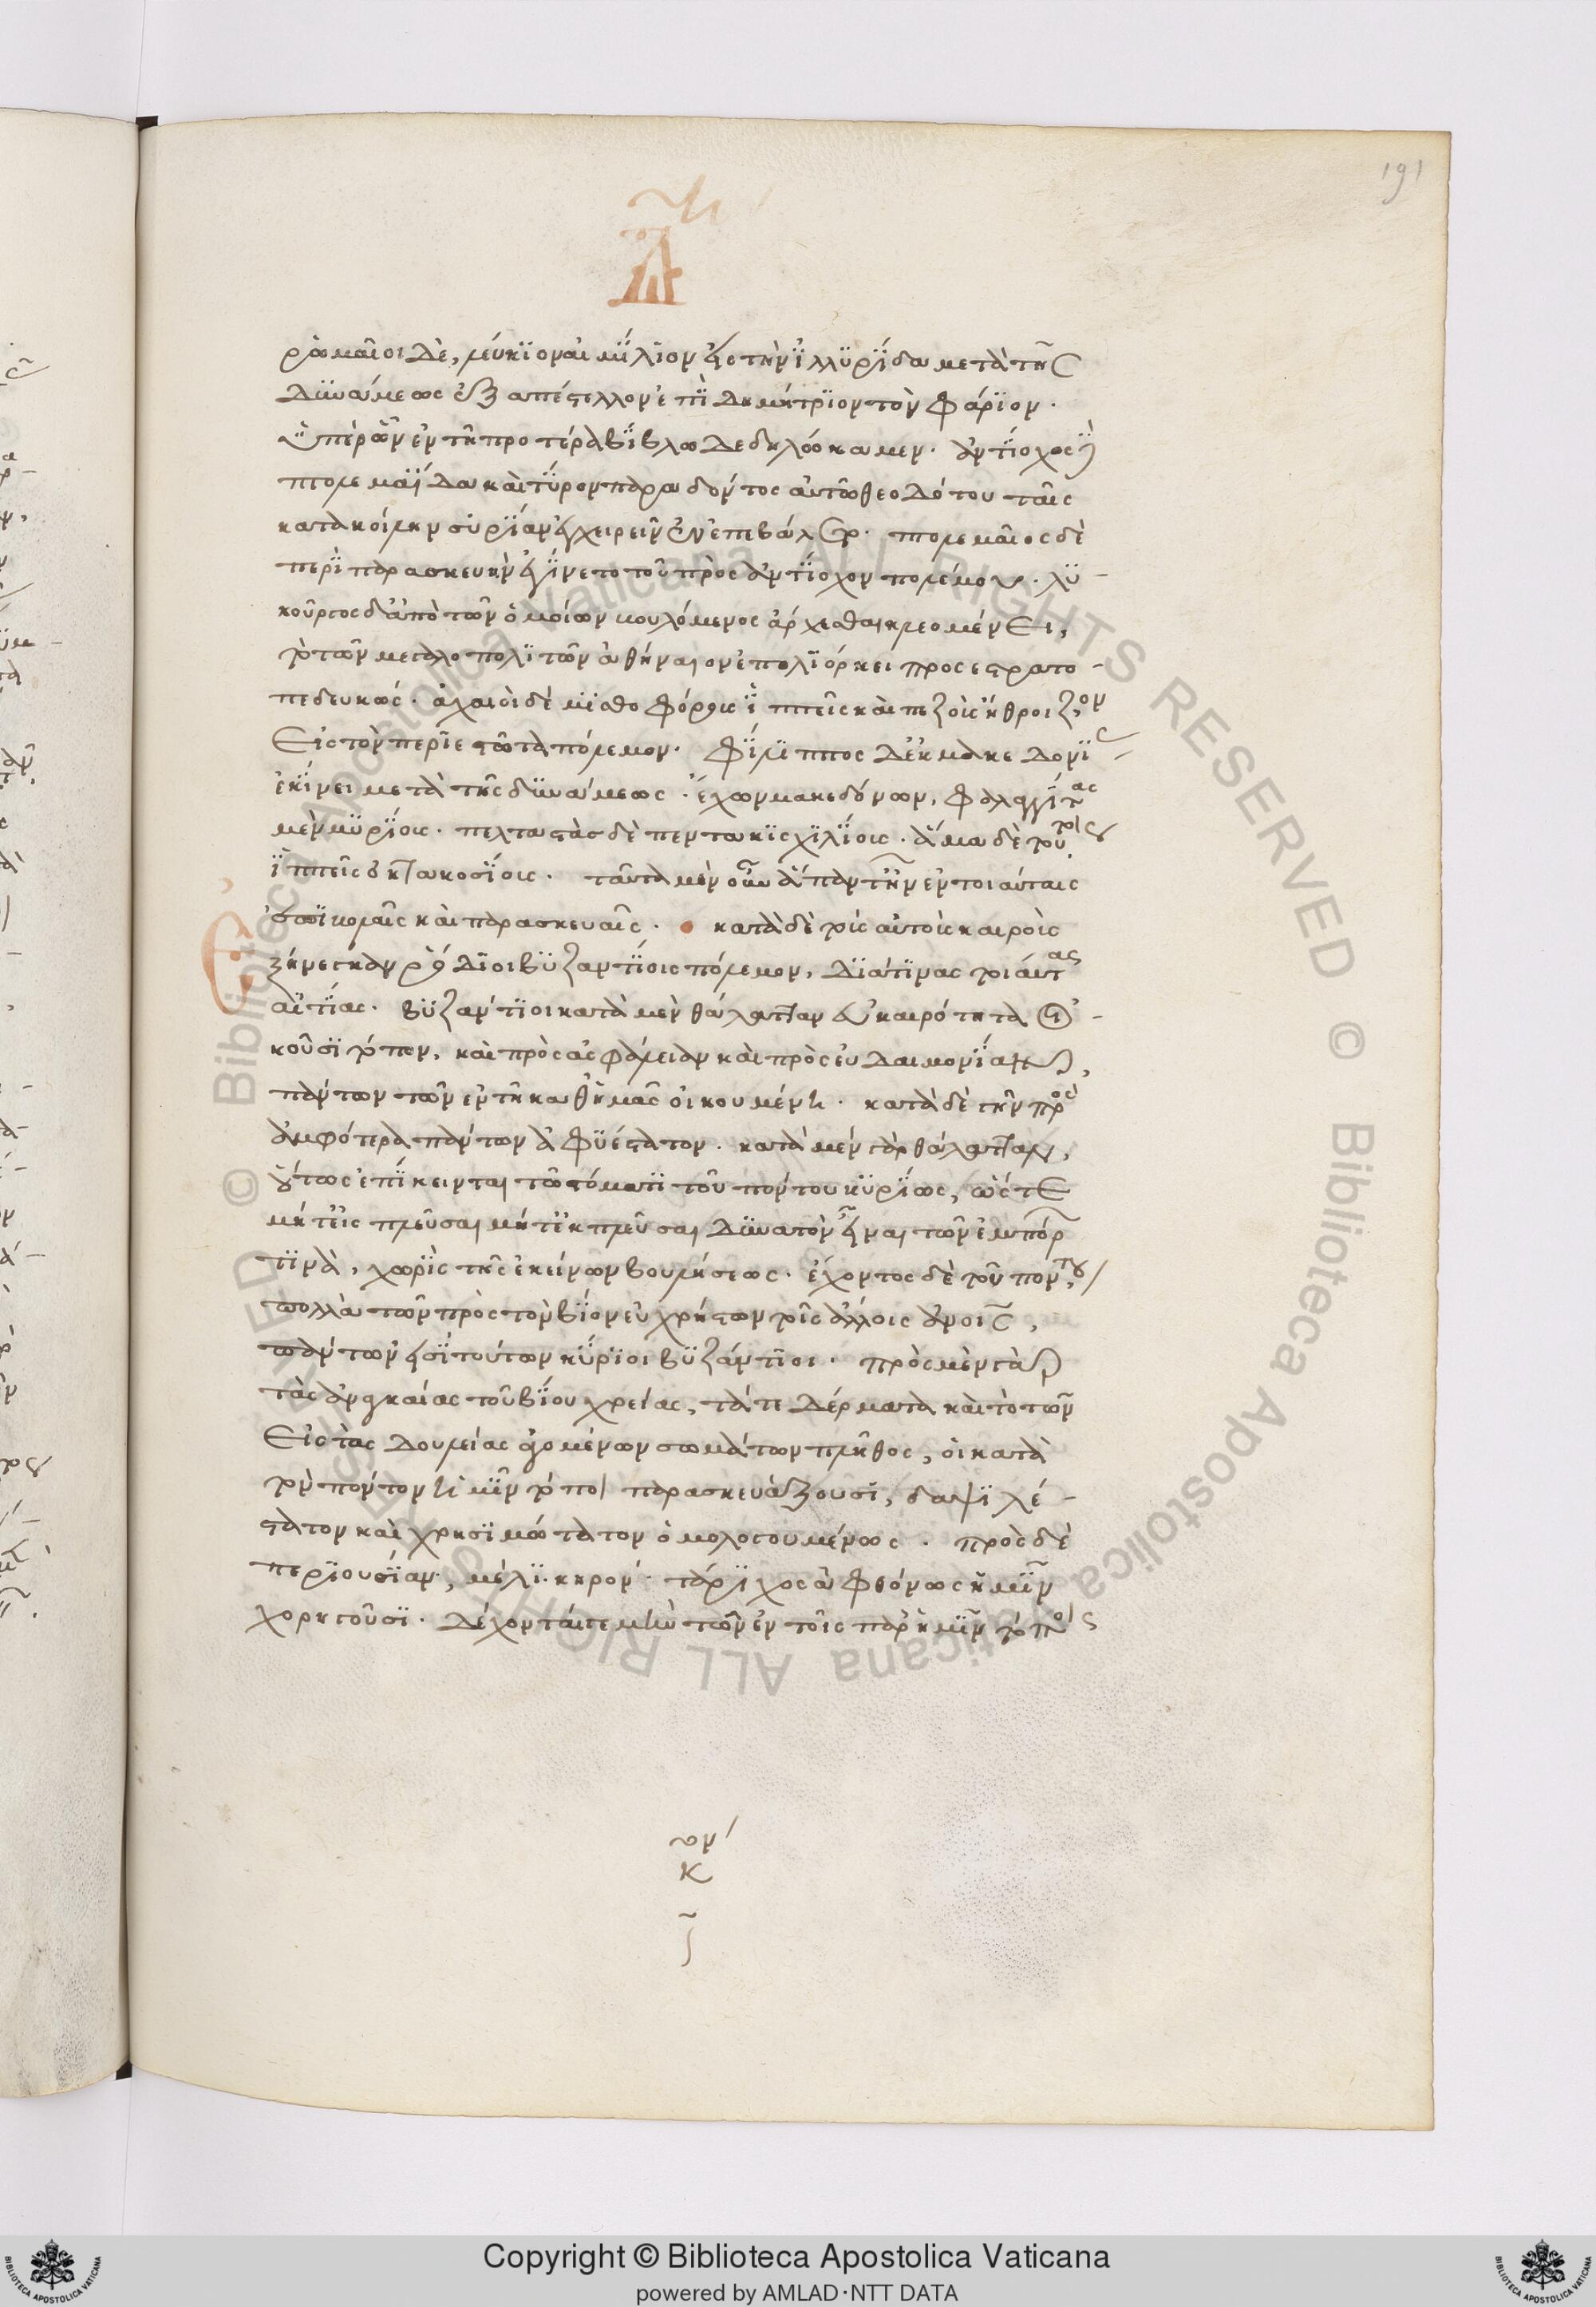 191
ρωμαῖοι δὲ, λεύκϊον αἰμίλϊον εἰς τὴν ἰλλϋρΐδα μετὰ τῆς
δϋνάμεως ἐξαπέστελλον ἐπῒ δημήτρϊον τὸν φάρϊον·
ὑπὲρ ὧν ἐν τῆ προτέρα βΐβλω δεδηλώκαμεν. ἀντΐοχος δὲ
πτολεμαΐδα καὶ τύρον παραδόντος αὐτῶ θεοδότου ταῖς
κατὰ κοίλην συρΐαν ἐγχειρεῖν ἐπεβάλετο. πτολεμαῖος δὲ
περῒ παρασκευὴν ἐγίνετο τοῦ πρὸς ἀντΐοχον πολέμου. λϋ-
κοῦργος δ' ἀπὸ τῶν ὁμοίων βουλόμενος ἄρχεσθαι κλεομένει,
τὸ τῶν μεγαλοπολϊτῶν ἀθήναιον ἐπολϊόρκει προσεστρατο-
πεδευκώς. ἀχαιοὶ δὲ μϊσθοφόρους ἱππεῖς καὶ πεζοὺς ἤθροιζον
εἰς τὸν περιεστῶτα πόλεμον. φΐλιππος δ' ἐκ μακεδονΐας
ἐκΐνει μετὰ τῆς δϋνάμεως. ἔχων μακεδόνων, φαλαγγΐτας
μὲν μϋρΐους. πελταστὰς δὲ πεντακϊσχϊλΐους. ἅμα δὲ τούτοις
ἱππεῖς ὀκτακοσΐους. ταῦτα μὲν οὖν ἅπαντ' ἦν ἐν τοιαύταις
ἐπιβολαῖς καὶ παρασκευαῖς. κατὰ δὲ τοὺς αὐτοὺς καιροὺς
ἐξήνεγκαν ῥόδϊοι βϋζαντΐοις πόλεμον, δϊά τϊνας τοιαύτας
αἰτΐας. βϋζάντϊοι κατὰ μὲν θάλατταν εὐκαιρότατα οἰ-
κοῦσϊ τόπον, καὶ πρὸς ἀσφάλειαν καὶ πρὸς εὐδαιμονΐαν,
πάντων τῶν ἐν τῆ καθ' ἡμᾶς οἰκουμένη. κατὰ δὲ τὴν πρὸς
ἀμφότερα πάντων ἀφϋέστατον. κατὰ μὲν γὰρ θάλατταν,
οὕτως ἐπΐκεινται τῶ στόματϊ τοῦ πόντου κϋρΐως, ὥστε
μήτ' εἰσπλεῦσαι μήτ' ἐκπλεῦσαι δϋνατὸν εἶναι τῶν ἐμπόρων
τϊνὰ, χωρῒς τῆς ἐκείνων βουλήσεως. ἔχοντος δὲ τοῦ πόντου
πολλὰ τῶν πρὸς τὸν βΐον εὐχρήστων τοῖς ἄλλοις ἀνοις,
πάντων εἰσϊ τούτων κύρϊοι βϋζάντϊοι. πρὸς μὲν γὰρ
τὰς ἀναγκαίας τοῦ βΐου χρείας, τά τε δέρματα καὶ τὸ τῶν
εἰς τὰς δουλείας ἀγομένων σωμάτων πλῆθος, οἱ κατὰ
τὸν πόντον ἡμῖν τόποι παρασκευάζουσϊ, δαψϊλέ-
στατον καὶ χρησϊμώτατον ὁμολογουμένως. πρὸς δὲ
περϊουσΐαν, μέλϊ. κηρόν. τάρϊχος ἀφθόνως ἡμῖν
χορηγοῦσϊ. δέχονταί γε μὴν τῶν ἐν τοῖς παρ' ἡμῖν τόποις